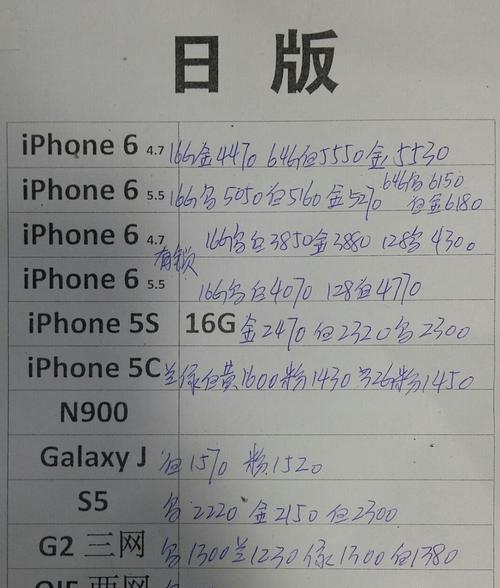 日版
iPhone 6 4.7 16G金4470 64G白5550 金5530
64G 6150
iPhone 6 5.5 16G 5050白5160金5270 白金6180
iPhone 6 4.7 16G 白3850金3880 128 4300
有锁
iPhone 6 5.5 16G 白4070 128白4770
iPhone 5S 16G 金2470 白2320 2300
iPhone 5C 兰绿白黄1600粉1430 粉1450
N900
Galaxy J 白1570 粉1520
S5 2220 金2150 白2300
G2 三网 1300兰1230绿1300白1380